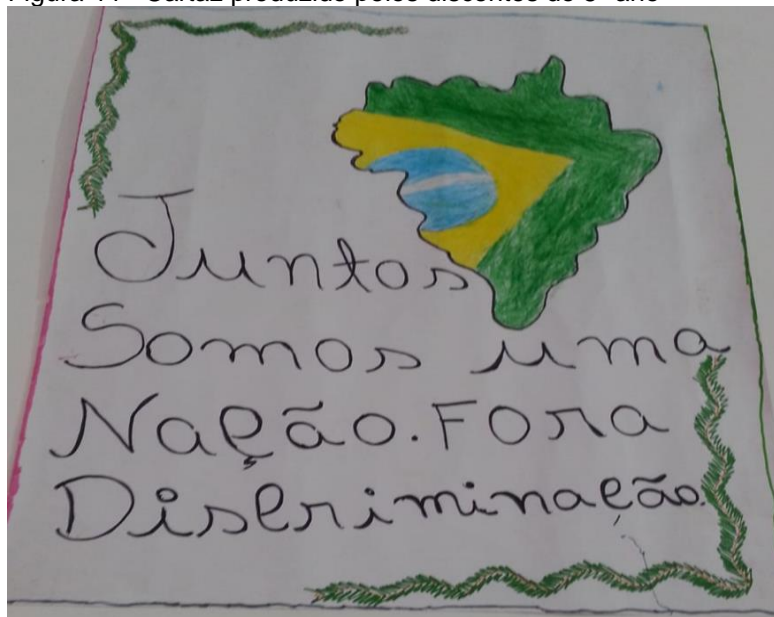 Juntos
Somos uma
Nação. Fora
Discriminação.